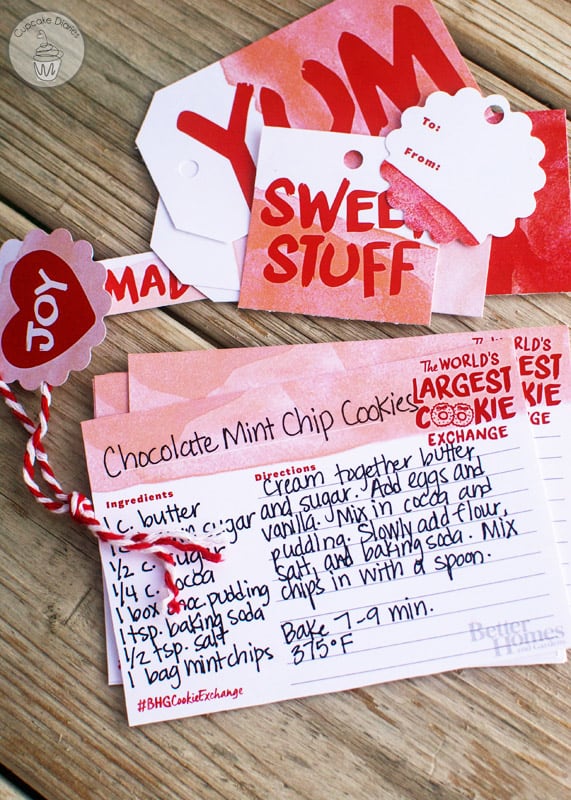 Cupcake Diaries
YUM
To:
From:
SWEET
STUFF
JOY
MAD
The WORLD'S
LARGEST
COOKIE
EXCHANGE
Chocolate Mint Chip Cookies
Ingredients
1 c. butter
sugar
1/2 c. sugar
1/4 c. cocoa
1 box choc. pudding
1 tsp. baking soda
1/2 tsp. salt
1 bag mint chips
#BHGCookieExchange
Directions
Cream together butter
and sugar. Add eggs and
vanilla. Mix in cocoa and
pudding. Slowly add flour,
salt, and baking soda. Mix
chips in with a spoon.
Bake 7-9 min.
375°F
Better
Homes
and Gardens